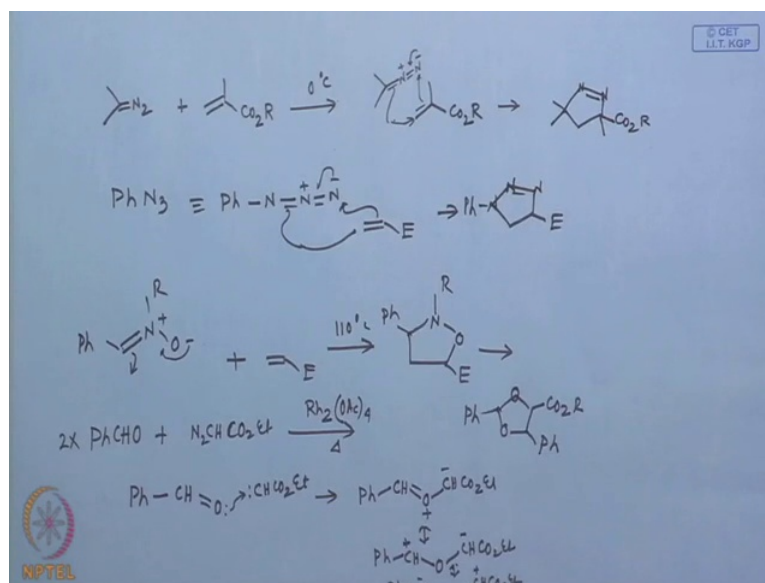 © CET
I.I.T. KGP
=N₂ + CO₂R 0°C → N + = N - CO₂R → N = N CO₂R
Ph N₃ ≡ Ph - N = N + ≡ N - E → Ph - N N N E
Ph N + R O - + E 110°C → Ph N R O E →
2x PhCHO + N₂CHCO₂Et Rh₂(OAc)₄ Δ → Ph O O CO₂R Ph
Ph - CH = O: :CHCO₂Et → Ph - CH = O + - CHCO₂Et
↕
Ph - CH + - O - - CHCO₂Et
NPTEL